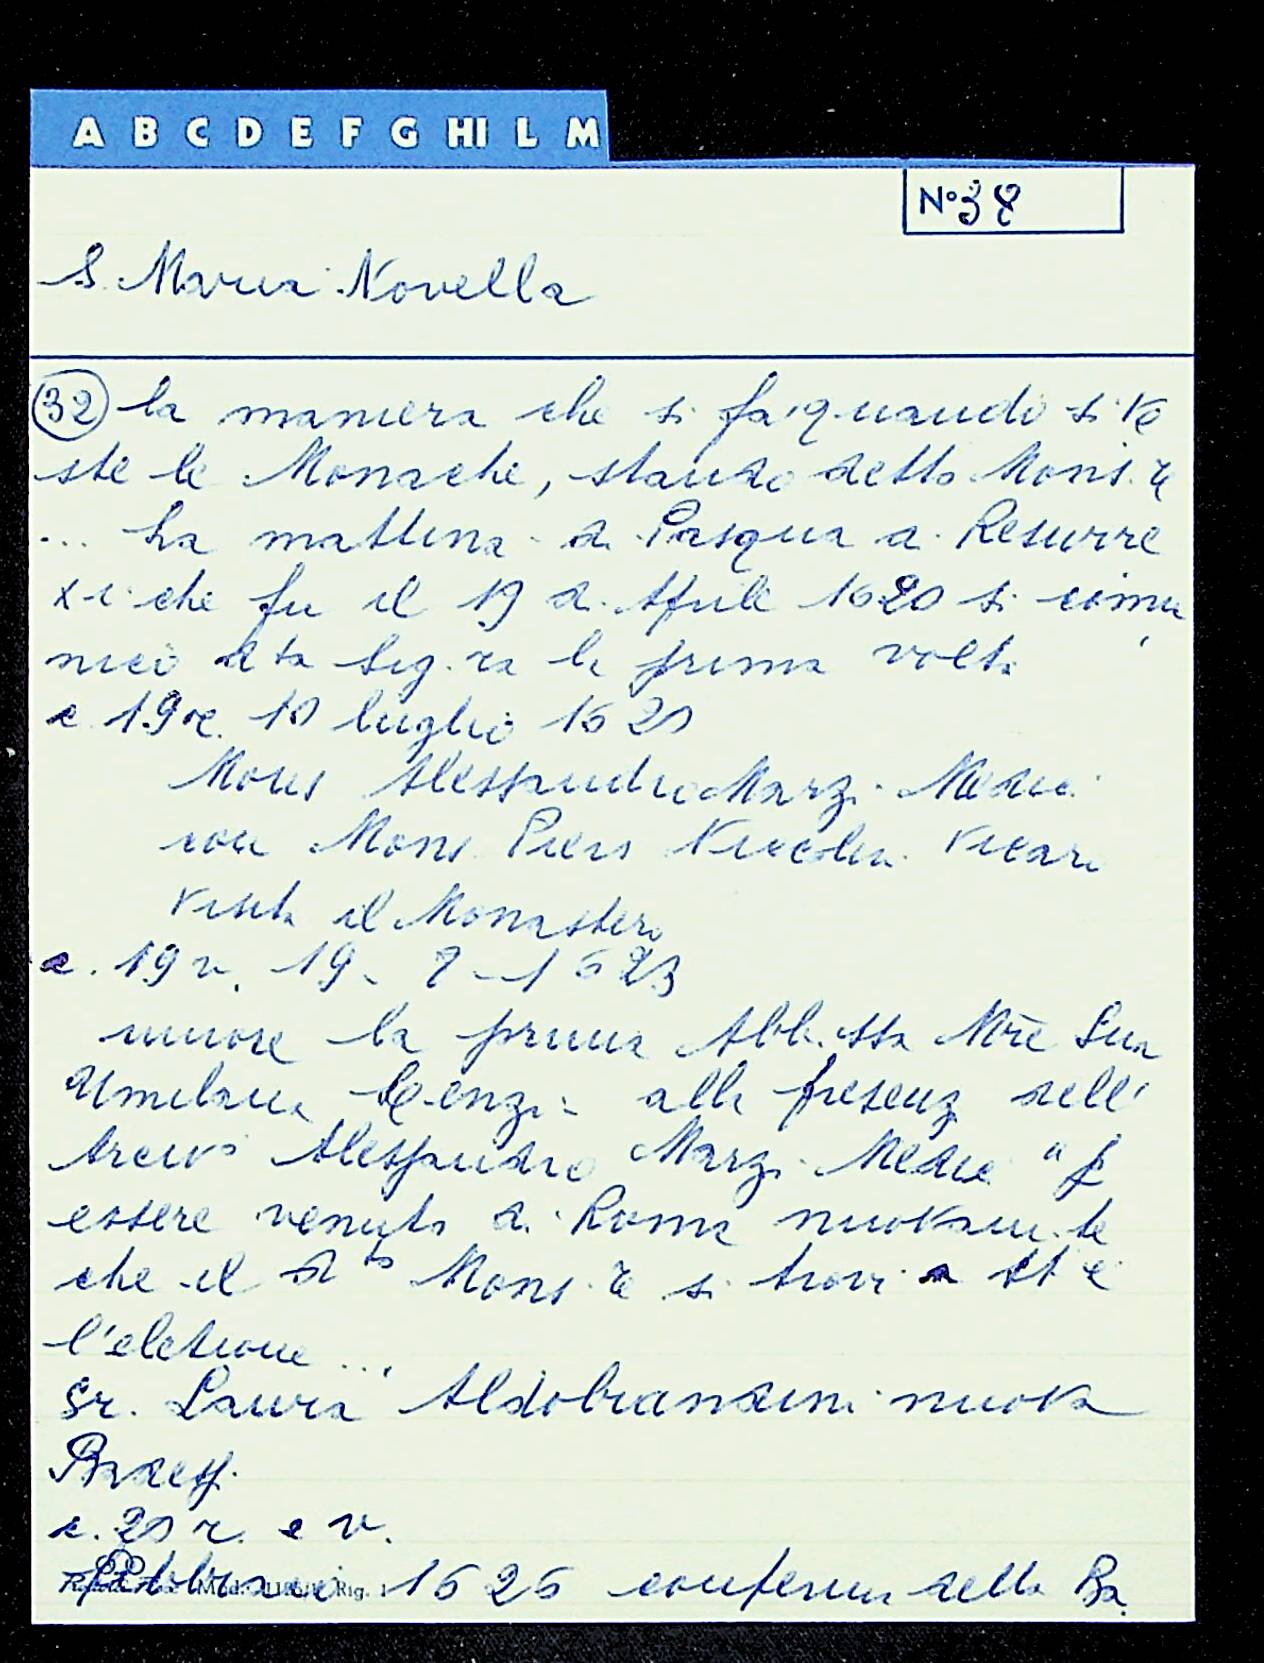 A B C D E F G HI L M
N° 38
S. Maria Novella
(32) la maniera che si fa quando si ve
ste le Monache, stando detto Mons.re
... La mattina di Pasqua di Resurre
x-i che fu il 19 di Aprile 1620 si comu
nicò d.ta Sig.ra la prima volta
c. 19r. 10 luglio 1620
Mons Alessandro Marzi Medici
con Mons Piero Niccolini Vicario
Visita il Monastero
c. 19v. 19- 1623
muore la prima Abb.ssa M̃re Suor
Umiliana Lenzi alla presenza dell'
Arciv° Alessandro Marzi Medici "p
essere venuto di Roma nuovam.te
che il d to Mons.re si trovi a
l'eletione ...
Sr. Laura Aldobrandini nuova
Badess.
c. 20 r. e v.
Febbraio 1626 conferma della Ba
Rig. 1